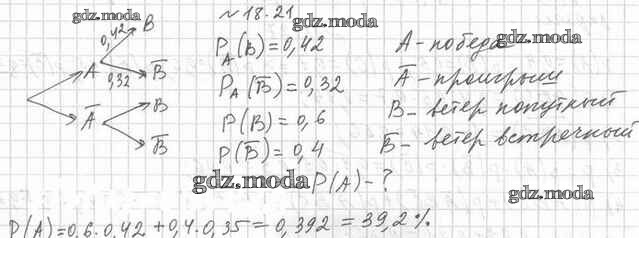 gdz.moda
№ 18.21
gdz.moda
0,42 B
A
0,32 B̅
A̅
B
B̅
P_A(B)=0,42
P_A(B̅)=0,32
P(B)=0,6
P(B̅)=0,4
gdz.moda P(A)-?
A-победа
gdz.moda
A̅-проигрыш
B-ветер попутный
B̅-ветер встречный
gdz.moda
P(A)=0.6·0,42+0,4·0,35=0,392=39,2%